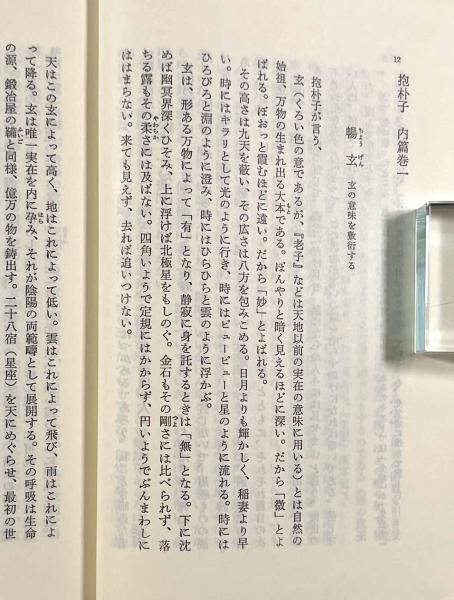 12
抱朴子 内篇巻一
暢玄 玄の意味を敷衍する
抱朴子が言う、
玄(くろい色の意であるが、『老子』などは天地以前の実在の意味に用いる)とは自然の
始祖、万物の生まれ出る大本である。ぼんやりと暗く見えるほどに深い。だから「微」とよ
ばれる。ぼおっと霞むほどに遠い。だから「妙」とよばれる。
その高さは九天を蔽い、その広さは八方を包みこめる。日月よりも輝かしく、稲妻より早
い。時にはキラリとして光のように行き、時にはビュービューと星のように流れる。時には
ひろびろと淵のように澄み、時にはひらひらと雲のように浮かぶ。
玄は、形ある万物によって「有」となり、静寂に身を託するときは「無」となる。下に沈
めば幽冥界深くひそみ、上に浮けば北極星をもしのぐ。金石もその剛さには比べられず、落
ちる露もその柔さには及ばない。四角いようで定規にはかからず、円いようでぶんまわしに
はまらない。来ても見えず、去れば追いつけない。
天はこの玄によって高く、地はこれによって低い。雲はこれによって飛び、雨はこれによ
って降る。玄は唯一実在を内に孕み、それが陰陽の両範疇として展開する。その呼吸は生命
の源、鍛冶屋の鞴と同様、億万の物を鋳出す。二十八宿(星座)を天にめぐらせ、最初の世